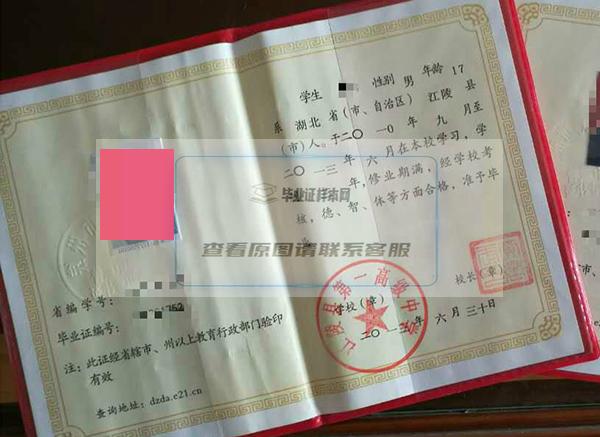 学生 性别 男 年龄 17
系 湖北 省(市、自治区) 江陵 县
(市)人。于二〇一〇年 九 月至
二〇一三年 六 月在本校学习,学
年,修业期满,经学校考
核,德、智、体等方面合格,准予毕
业。
校长(章)
学校(章)
江陵县第一高级中学
年 六 月 三十日
省编学号:
毕业证编号:
注:此证经省辖市、州以上教育行政部门验印
有效
查询地址: dzda.e21.cn
毕业证样本网
查看原图请联系客服